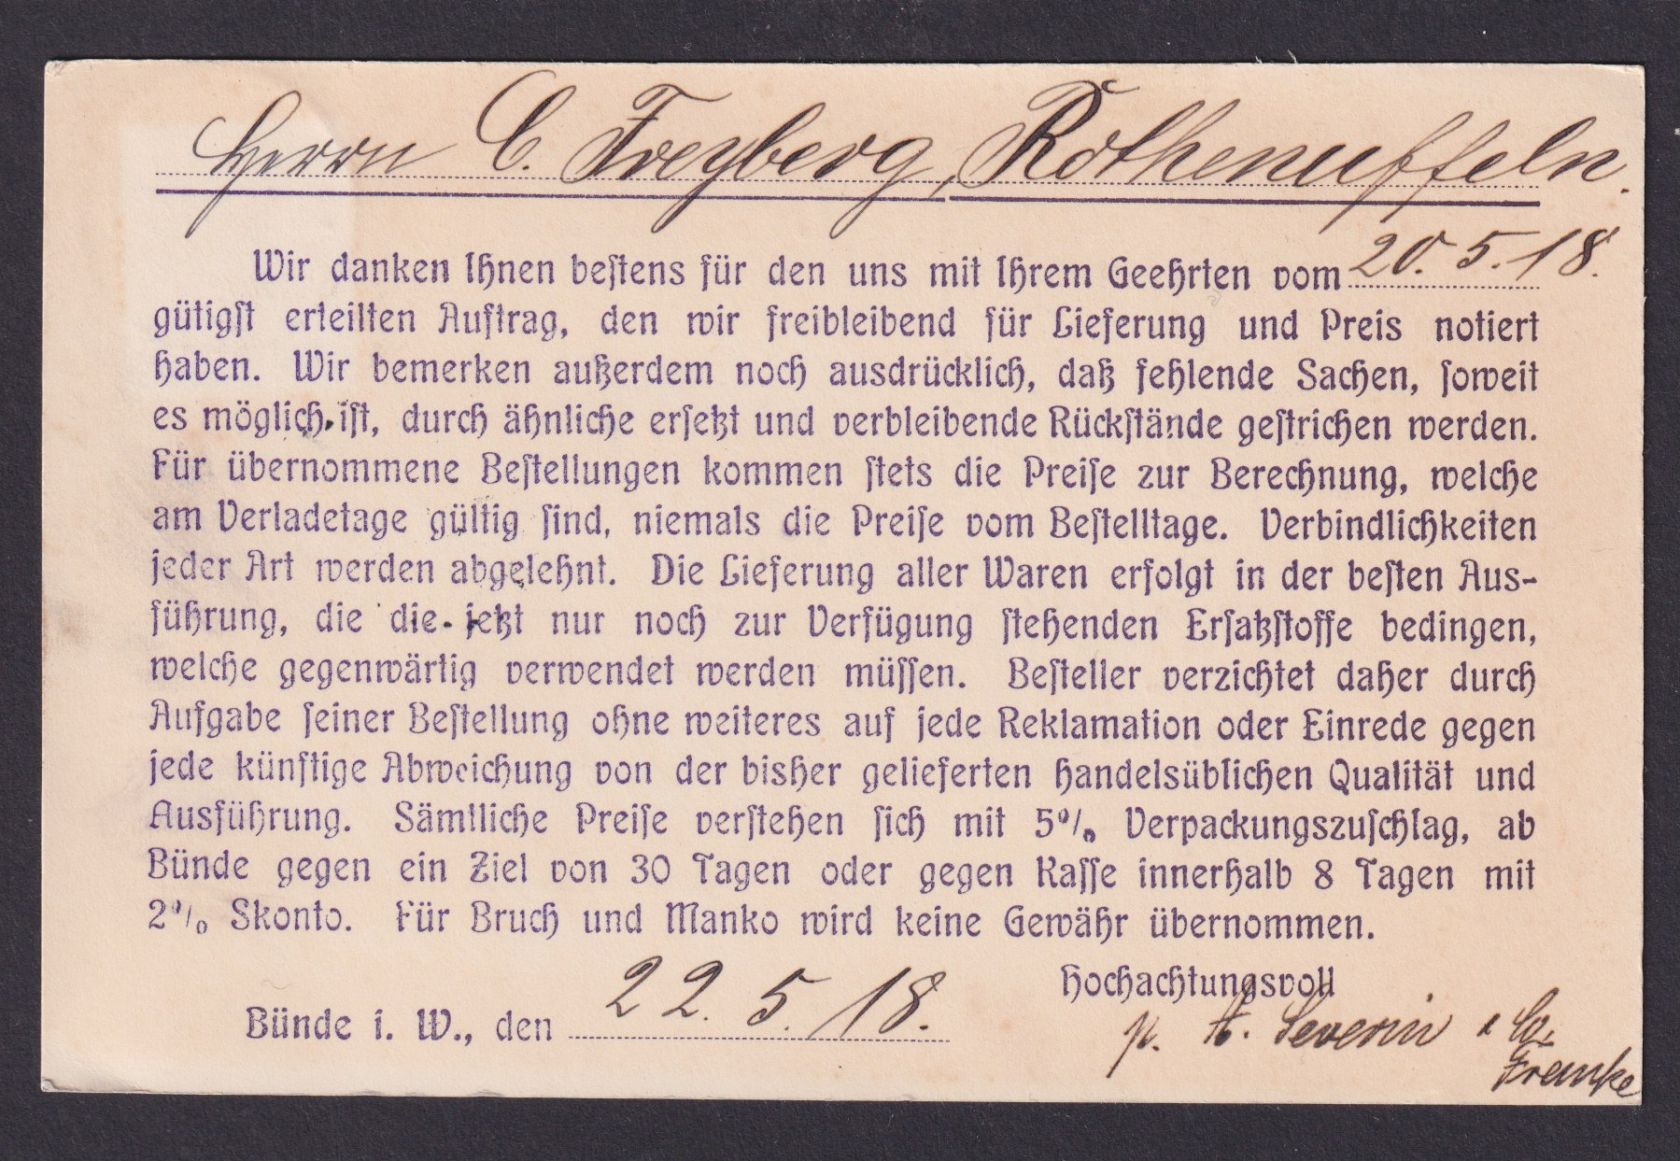 Herrn C. Freyberg, Rothenuffeln.
Wir danken Ihnen beſtens für den uns mit Ihrem Geehrten vom 20. 5. 18.
gütigſt erteilten Auftrag, den wir freibleibend für Lieferung und Preis notiert
haben. Wir bemerken außerdem noch ausdrücklich, daß fehlende Sachen, ſoweit
es möglich iſt, durch ähnliche erſetzt und verbleibende Rückſtände geſtrichen werden.
Für übernommene Beſtellungen kommen ſtets die Preiſe zur Berechnung, welche
am Verladetage gültig ſind, niemals die Preiſe vom Beſtelltage. Verbindlichkeiten
jeder Art werden abgelehnt. Die Lieferung aller Waren erfolgt in der beſten Aus-
führung, die die jetzt nur noch zur Verfügung ſtehenden Erſatzſtoffe bedingen,
welche gegenwärtig verwendet werden müſſen. Beſteller verzichtet daher durch
Aufgabe ſeiner Beſtellung ohne weiteres auf jede Reklamation oder Einrede gegen
jede künftige Abweichung von der bisher gelieferten handelsüblichen Qualität und
Ausführung. Sämtliche Preiſe verſtehen ſich mit 5% Verpackungszuſchlag, ab
Bünde gegen ein Ziel von 30 Tagen oder gegen Kaſſe innerhalb 8 Tagen mit
2% Skonto. Für Bruch und Manko wird keine Gewähr übernommen.
Hochachtungsvoll
Bünde i. W., den 22. 5. 18.
p. A. Severin & Co.